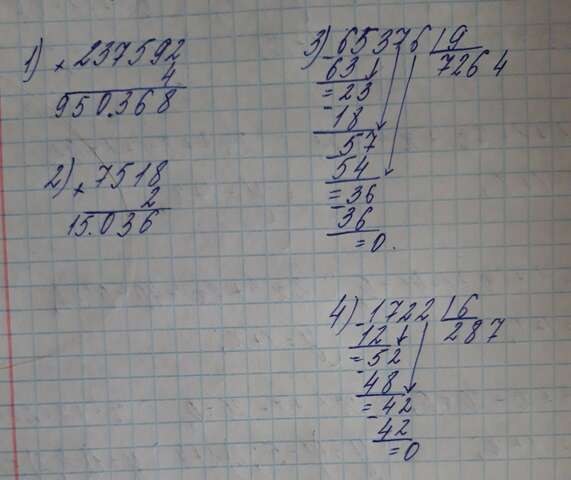 1) × 237592
4
950.368
2) × 7518
2
15.036
3) - 65376 | 9
63 7264
= 23
- 18
57
- 54
= 36
- 36
= 0.
4) - 1722 | 6
12 287
= 52
- 48
= 42
- 42
= 0